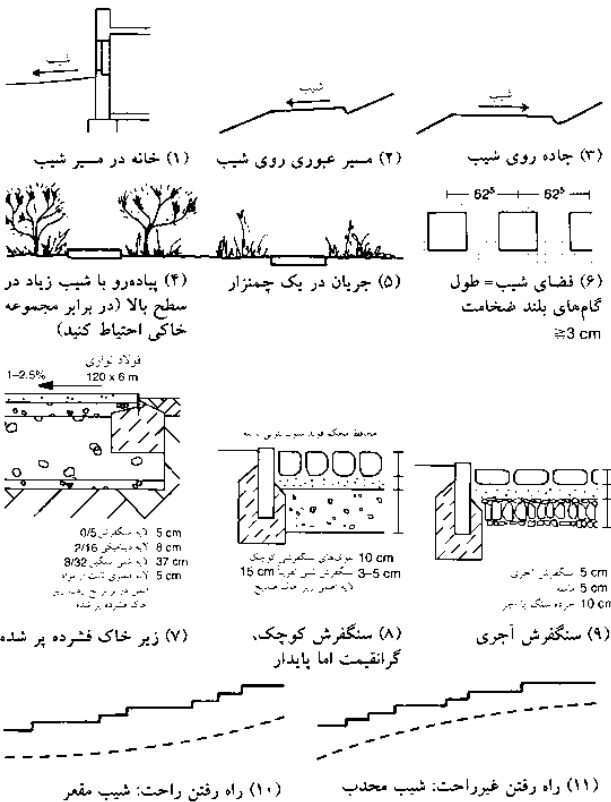 شیب
شیب
شیب
(۱) خانه در مسیر شیب
(۲) مسیر عبوری روی شیب
(۳) جاده روی شیب
62⁵ 62⁵
(۴) پیاده‌رو با شیب زیاد در
سطح بالا (در برابر مجموعه
خاکی احتیاط کنید)
(۵) جریان در یک چمنزار
(۶) فضای شیب= طول
گام‌های بلند ضخامت
≧3 cm
فولاد نواری
120 x 6 m
1–2.5%
5 cm لایه سنگفرش 0/5
8 cm لایه 2/16
37 cm لایه 8/32
5 cm لایه
خاک فشرده پر شده
10 cm سنگفرشی کوچک
3–5 cm سنگفرش 15 cm
لایه
5 cm سنگفرش آجری
5 cm ماسه
10 cm خرده سنگ یا آجر
(۷) زیر خاک فشرده پر شده
(۸) سنگفرش کوچک،
گرانقیمت اما پایدار
(۹) سنگفرش آجری
(۱۰) راه رفتن راحت: شیب مقعر
(۱۱) راه رفتن غیرراحت: شیب محدب